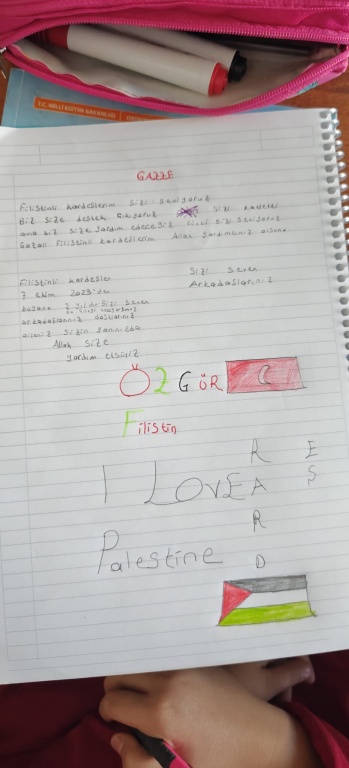 T.C. MİLLÎ EĞİTİM BAKANLIĞI
GAZZE
Filistinli kardeşlerim sizi seviyoruz
Biz size destek çıkıyoruz sizi
ama biz size yardım edeceğiz sizi seviyoruz
Gazali Filistinli kardeşlerim Allah yardımcınız olsun
Filistinli kardeşler
7 ekim 2023'den
sizi seven
arkadaşlarınız
ailemiz sizin yanınızda
Allah size
yardım etsin
Sizi Seven
Arkadaşlarınız
ÖZGÜR
Filistin
I LOVE
Palestine
R
A
R
D
E
S